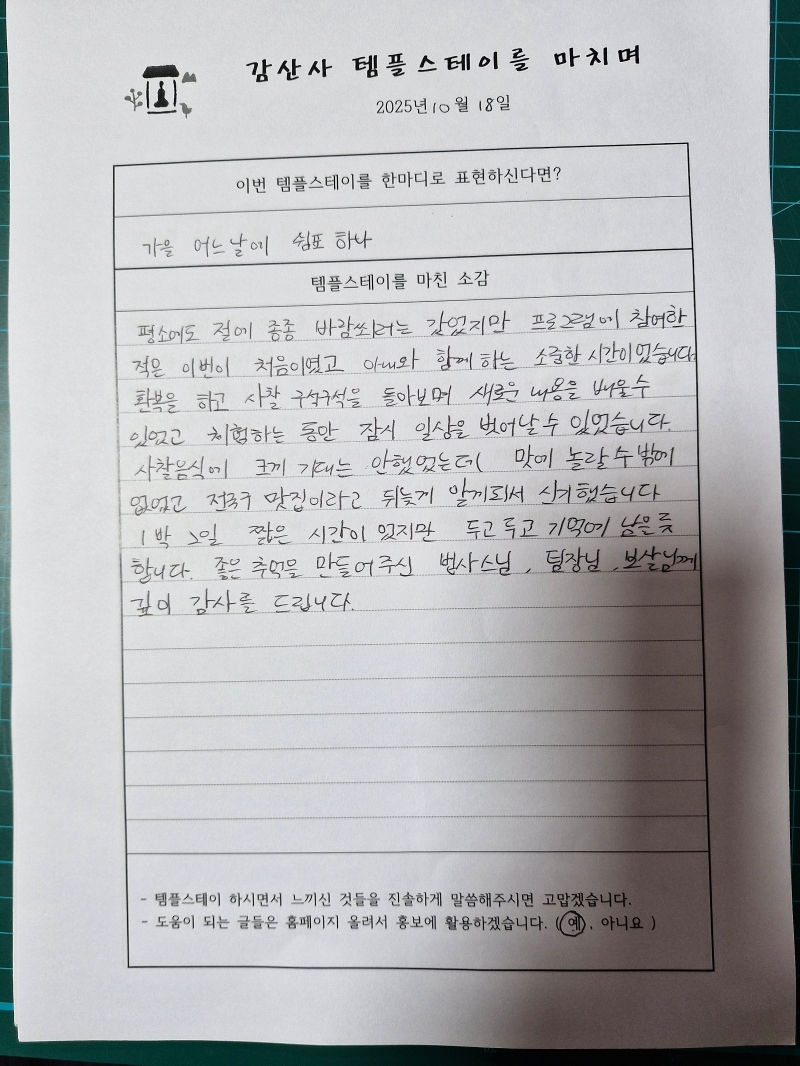 감산사 템플스테이를 마치며
2025년 10월 18일
이번 템플스테이를 한마디로 표현하신다면?
가을 어느날에 쉼표 하나
템플스테이를 마친 소감
평소에도 절에 종종 바람쐬러는 갔었지만 프로그램에 참여한
적은 이번이 처음이였고 아내와 함께 하는 소중한 시간이었습니다
환복을 하고 사찰 구석구석을 돌아보며 새로운 내용을 배울 수
있었고 체험하는 동안 잠시 일상을 벗어날 수 있었습니다.
사찰음식에 크게 기대는 안했었는데 맛에 놀랄 수 밖에
없었고 전국구 맛집이라고 뒤늦게 알게되서 신기했습니다
1박 2일 짧은 시간이 었지만 두고 두고 기억에 남을 듯
합니다. 좋은 추억을 만들어 주신 법사스님, 팀장님, 보살님께
깊이 감사를 드립니다.
- 템플스테이 하시면서 느끼신 것들을 진솔하게 말씀해주시면 고맙겠습니다.
- 도움이 되는 글들은 홈페이지 올려서 홍보에 활용하겠습니다. (예, 아니요 )